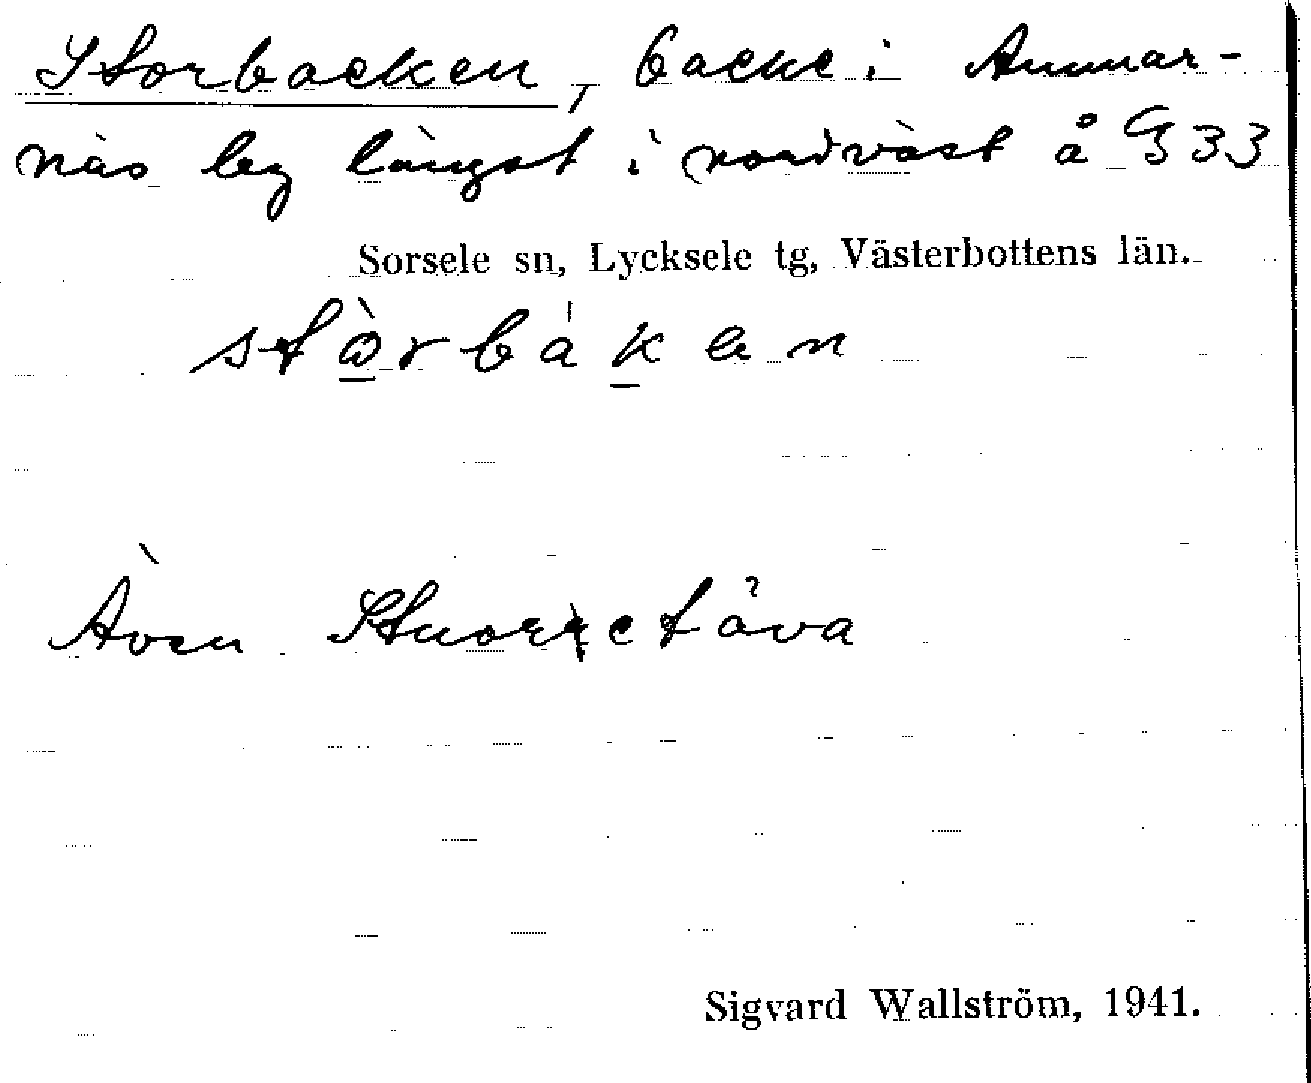 Storbacken, backe i Ammar-
näs by längst i nordväst å G 33
Sorsele sn, Lycksele tg, Västerbottens län.
stòrbákan
Även Stuorretåva
Sigvard Wallström, 1941.